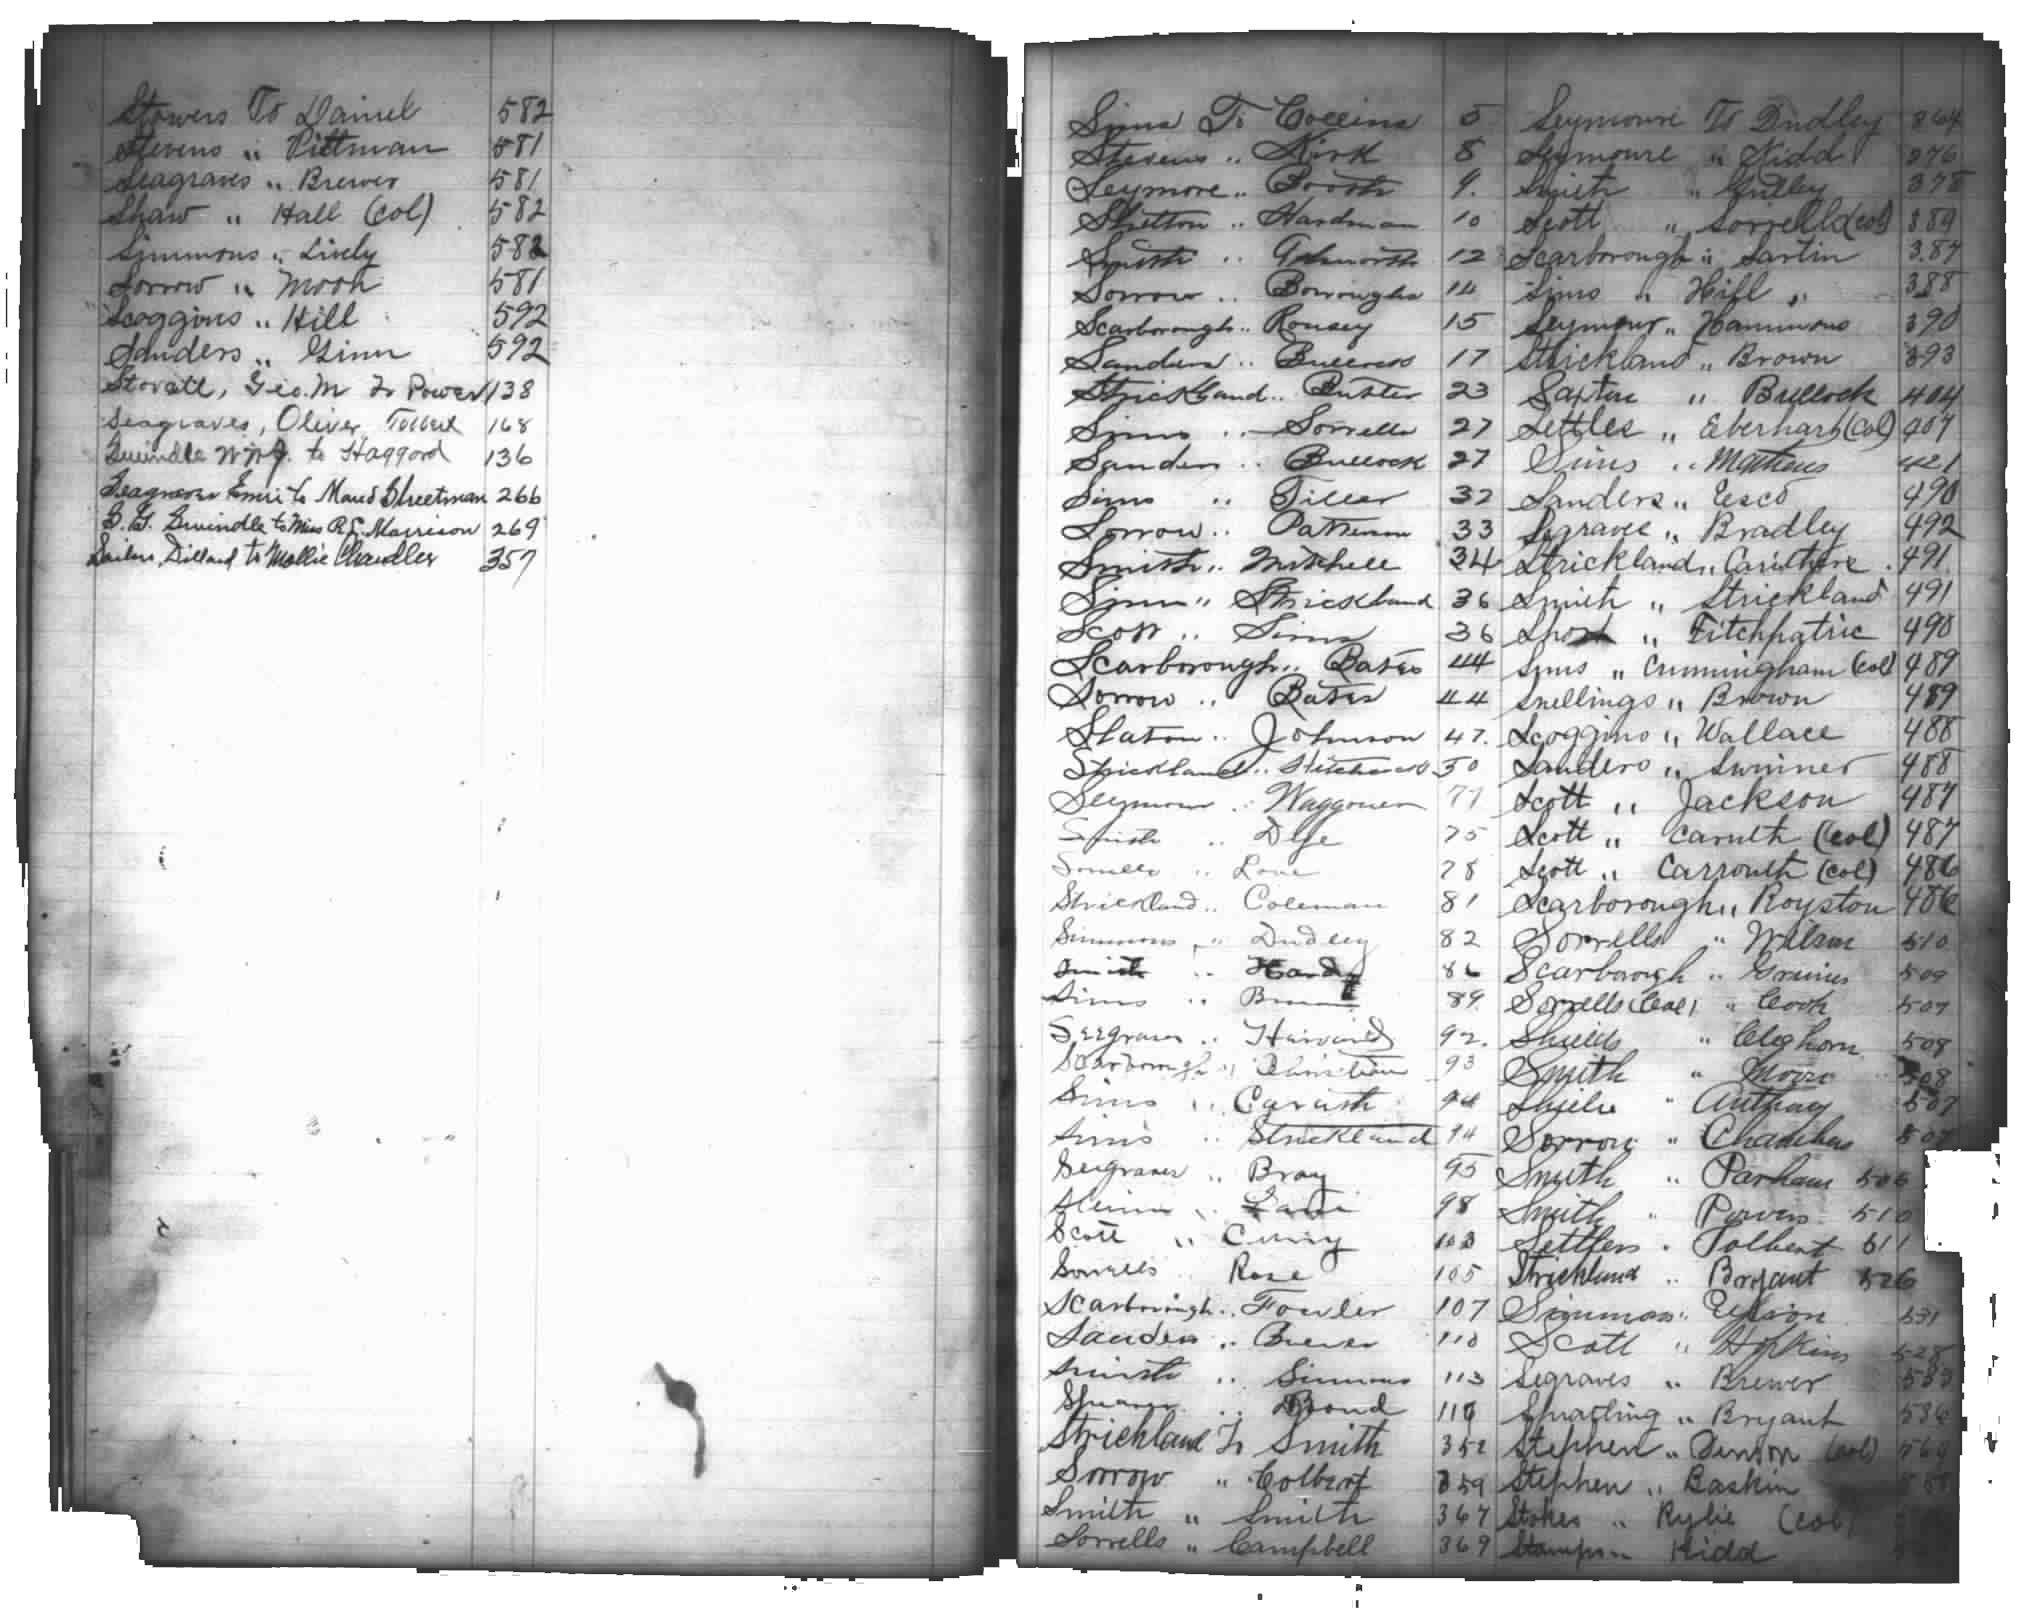 Stowers To Daniel 582
Stevens " Pittman 581
Seagraves " Brewer 581
Shaw " Hall (col) 582
Simmons " Lively 582
Sorrow " Moon 581
Scoggins " Hill 592
Sanders " Ginn 592
Stovall, Geo. M To Power 138
Seagraves, Oliver, Tolbert 168
Swindle W.W.J. to Haggard 136
Seagraves to Maud Streetman 266
Swindle to Miss R.E. Morrison 269
Sailers, Dillard to Mollie Chandler 357
Sims To Collins 5
Stevens " Kirk 8
Seymore " Booth 9
" Hardman 10
Smith " 12
Sorrow " Borroughs 14
Scarborough " Rousey 15
Sanders " Bullock 17
Strickland " 23
Sims " Sorrells 27
Sanders " Bullock 27
Sims " Tiller 32
Sorrow " Patterson 33
Smith " Mitchell 34
Sims " Strickland 36
Scott " Sims 36
Scarborough " Bates 44
Sorrow " Bates 44
Slaton " Johnson 47
Strickland " Hitchcock 50
Seymour " Waggoner 77
Smith " Dye 75
Sorrells " Love 78
Strickland " Coleman 81
Simmons " Dudley 82
Smith " Hardy 86
Sims " 89
Seegraves " Harvard 92
Scarborough " Christian 93
Sims " Caruth 94
Sims " Strickland 94
Seegraves " Bray 95
" 98
Scott " Curry 103
Sorrells " Rose 105
Scarborough " Fowler 107
Sanders " Brewer 110
Smith " Simmons 113
" Bond 116
Strickland To Smith 352
Sorrow " Colbert 359
Smith " Smith 367
Sorrells " Campbell 369
Seymoure To Dudley 364
Seymoure " Kidd 376
Smith " Gulley 378
Scott " Sorrells (col) 389
Scarborough " Sartin 387
Sims " Hill " 388
Seymour " Hammons 390
Strickland " Brown 393
Saxton " Bullock 404
Settles " Eberhart (col) 407
Sims " Mathews 421
Sanders " 490
Segraves " Bradley 492
Strickland " Caruthers 491
Smith " Strickland 491
Short " Fitchpatric 490
Sims " Cunningham (col) 489
Snellings " Brown 489
Scoggins " Wallace 488
Sanders " Sumner 488
Scott " Jackson 487
Scott " Caruth (col) 487
Scott " Carrouth (col) 486
Scarborough " Royston 486
Sorrells " Wilson 510
Scarborough " Graines 509
Sorrells (col) " Cook 507
Shields " Cleghorn 508
Smith " Moore 508
" Anthony 507
Sorrow " Chambers 507
Smith " Parham 506
Smith " Powers 510
Settlers " Tolbert 511
Strickland " Bryant 526
Simmons " Elison 531
Scott " Hopkins 528
Segraves " Brewer 533
Spratling " Bryant 536
Stephen " Denson (col) 569
Stephen " Baskin
Stokes " Rylie (col)
Kidd